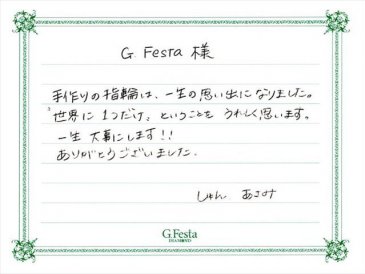 G. Festa 様
手作りの指輪は、一生の思い出になりました。
"世界に1つだけ"ということを うれしく思います。
一生 大事にします!!
ありがとうございました。
しゅん あさみ
G.Festa
DIAMOND